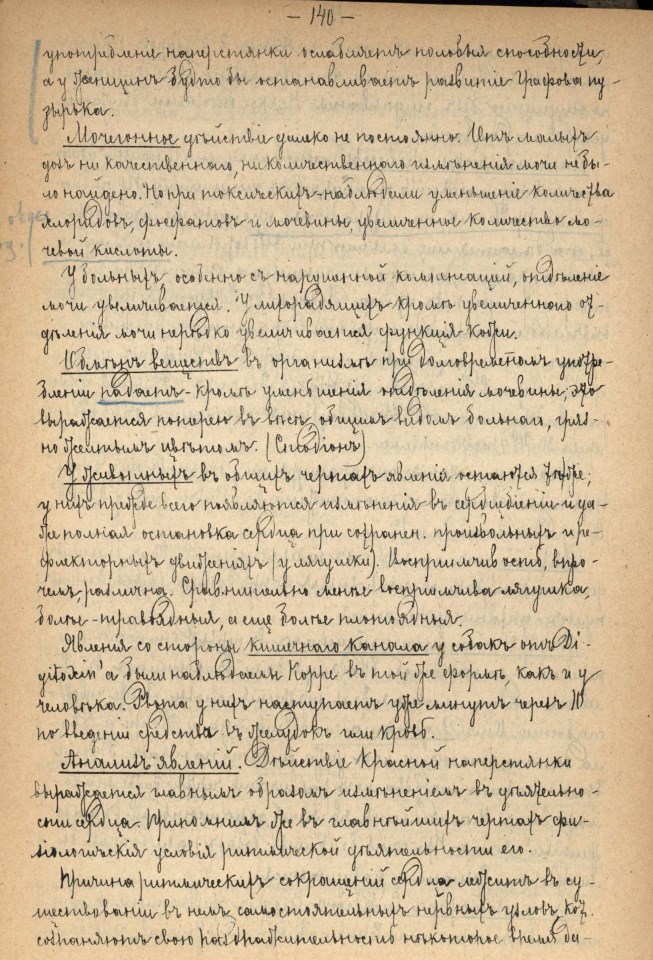 — 140 —
употребленіе наперстянки ослабляетъ половыя способности,
а у женщинъ будто бы останавливаетъ развитіе Графова пу-
зырька.
Мочегонное дѣйствіе далеко не постоянно. Отъ малыхъ
дозъ ни качественнаго, ни количественнаго измѣненія мочи не бы-
ло найдено. Но при токсическихъ – наблюдали уменьшеніе количества
хлоридовъ, фосфатовъ и мочевины, увеличенное количество мо-
чевой кислоты.
У больныхъ, особенно съ нарушенной компенсаціей, отдѣленіе
мочи увеличивается. У лихорадящихъ кромѣ увеличеннаго от-
дѣленія мочи нерѣдко увеличивается функція кожи.
Обмѣнъ веществъ въ организмѣ при долговременномъ употре-
бленіи падаетъ – кромѣ уменьшенія отдѣленія мочевины, это
выражается потерей въ вѣсѣ, общимъ видомъ больнаго, гряз-
но желтымъ цвѣтомъ. (Стадіонъ)
У животныхъ въ общихъ чертахъ явленія остаются тѣ же;
у нихъ прежде всего появляются измѣненія въ сердцебіеніи и да-
же полная остановка сердца при сохранен. произвольныхъ и ре-
флекторныхъ движеніяхъ (у лягушки). Воспріимчивость, впро-
чемъ, различна. Сравнительно менѣе воспріимчива лягушка,
болѣе – травоядныя, а еще болѣе плотоядныя.
Явленія со стороны кишечнаго канала у собакъ отъ Di-
gitoxin'а были наблюдаемы Коппе въ той же формѣ, какъ и у
человѣка. Рвота у нихъ наступаетъ уже минутъ черезъ 10
по введеніи средства въ желудокъ или кровь.
Анализъ явленій. Дѣйствіе красной наперстянки
выражается главнымъ образомъ измѣненіемъ въ дѣятельно-
сти сердца. Припомнимъ же въ главнѣйшихъ чертахъ фи-
зіологическія условія ритмической дѣятельности его.
Причина ритмическихъ сокращеній сердца лежитъ въ су-
ществованіи въ немъ самостоятельныхъ нервныхъ узловъ, кот.
сохраняютъ свою раздражительность нѣкоторое время да-